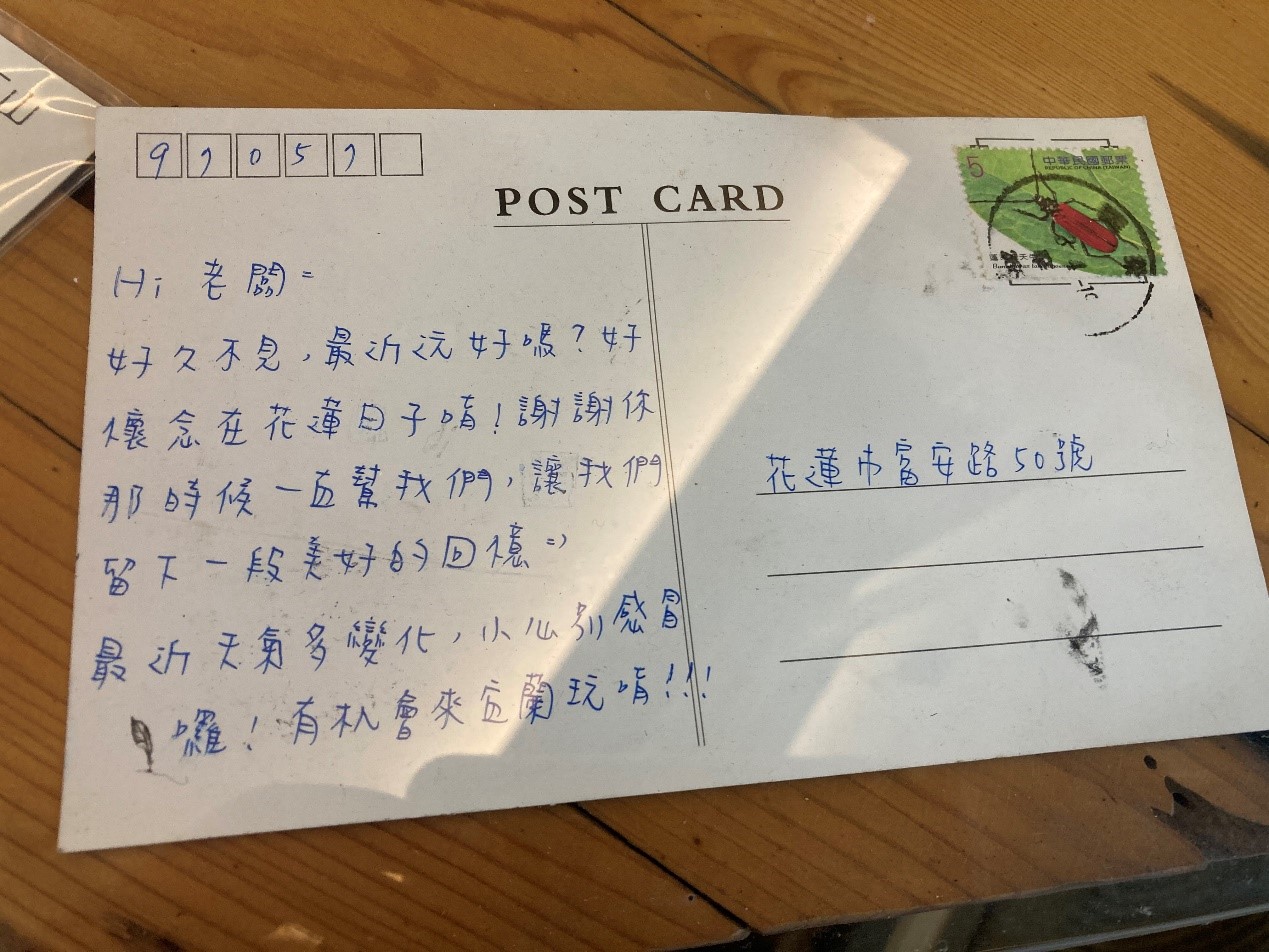 97057
POST CARD
5
中華民國郵票
REPUBLIC OF CHINA (TAIWAN)
Hi 老闆=
好久不見,最近沅好嗎?好
懷念在花蓮日子唷!謝謝你
那時候一直幫我們,讓我們
留下一段美好的回憶=)
最近天氣多變化,小心別感冒
囉!有机會來宜蘭玩唷!!!
花蓮市富安路50號